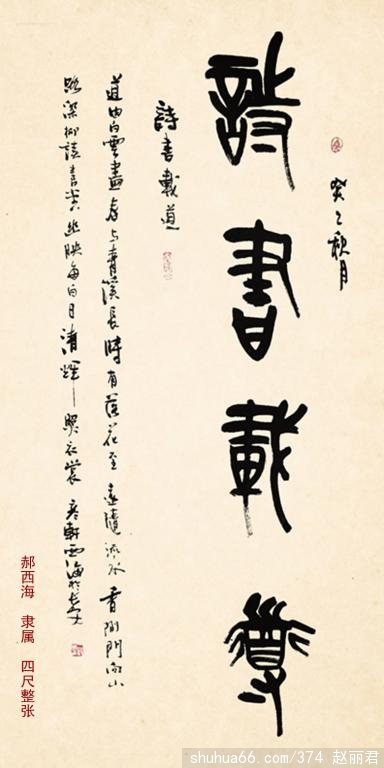 癸巳秋月
詩書載道
詩書載道
道由白雲盡春与青溪長時有落花至遠隨流水香閑門向山
路深柳讀書堂幽映每白日清輝照衣裳 軒西海於
郝西海 隶属 四尺整张
shuhua66.com/374 赵丽君